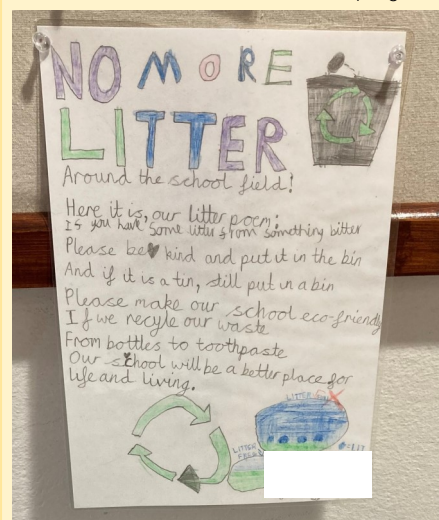 NO MORE
LITTER
Around the school field!
Here it is, our litter poem:
If you have some litter from something bitter
Please be kind and put it in the bin
And if it is a tin, still put in a bin
Please make our school eco-friendly
If we recyle our waste
From bottles to toothpaste
Our school will be a better place for
life and living.
LITTER
LITTER